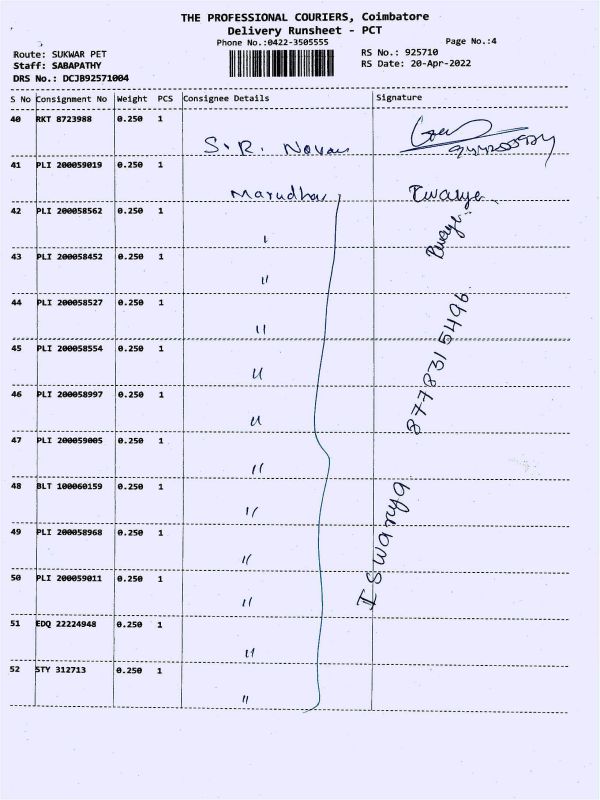 THE PROFESSIONAL COURIERS, Coimbatore
Delivery Runsheet - PCT
Phone No.:0422-3505555
Page No.:4
Route: SUKWAR PET
RS No.: 925710
Staff: SABAPATHY
RS Date: 20-Apr-2022
DRS No.: DCJB92571004
S No Consignment No Weight PCS Consignee Details Signature
40 RKT 8723988 0.250 1
S.R. Novan
41 PLI 200059019 0.250 1
Marudhar
42 PLI 200058562 0.250 1
43 PLI 200058452 0.250 1
"
44 PLI 200058527 0.250 1
"
45 PLI 200058554 0.250 1
"
46 PLI 200058997 0.250 1
"
47 PLI 200059005 0.250 1
"
48 BLT 100060159 0.250 1
"
49 PLI 200058968 0.250 1
"
50 PLI 200059011 0.250 1
"
51 EDQ 22224948 0.250 1
"
52 STY 312713 0.250 1
"
8778315496
ISwarya